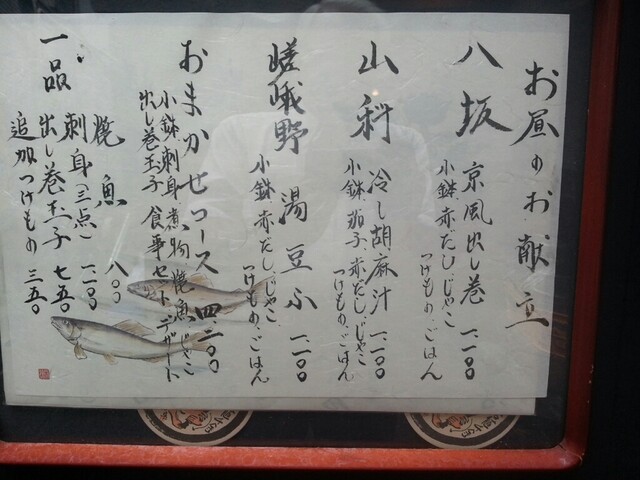 お昼のお献立
八坂 京風出し巻 一、一〇〇
小鉢、赤だし、じゃこ
つけもの、ごはん
山科 冷し胡麻汁 一、一〇〇
小鉢、茄子、赤だし、じゃこ
つけもの、ごはん
嵯峨野 湯豆ふ 一、一〇〇
小鉢、赤だし、じゃこ
つけもの、ごはん
おまかせコース 四、二〇〇
小鉢、刺身、煮物、焼魚、じゃこ
出し巻玉子、食事セット、デザート
一品
焼魚 八〇〇
刺身(三点) 一、二〇〇
出し巻玉子 七五〇
追加つけもの 三五〇